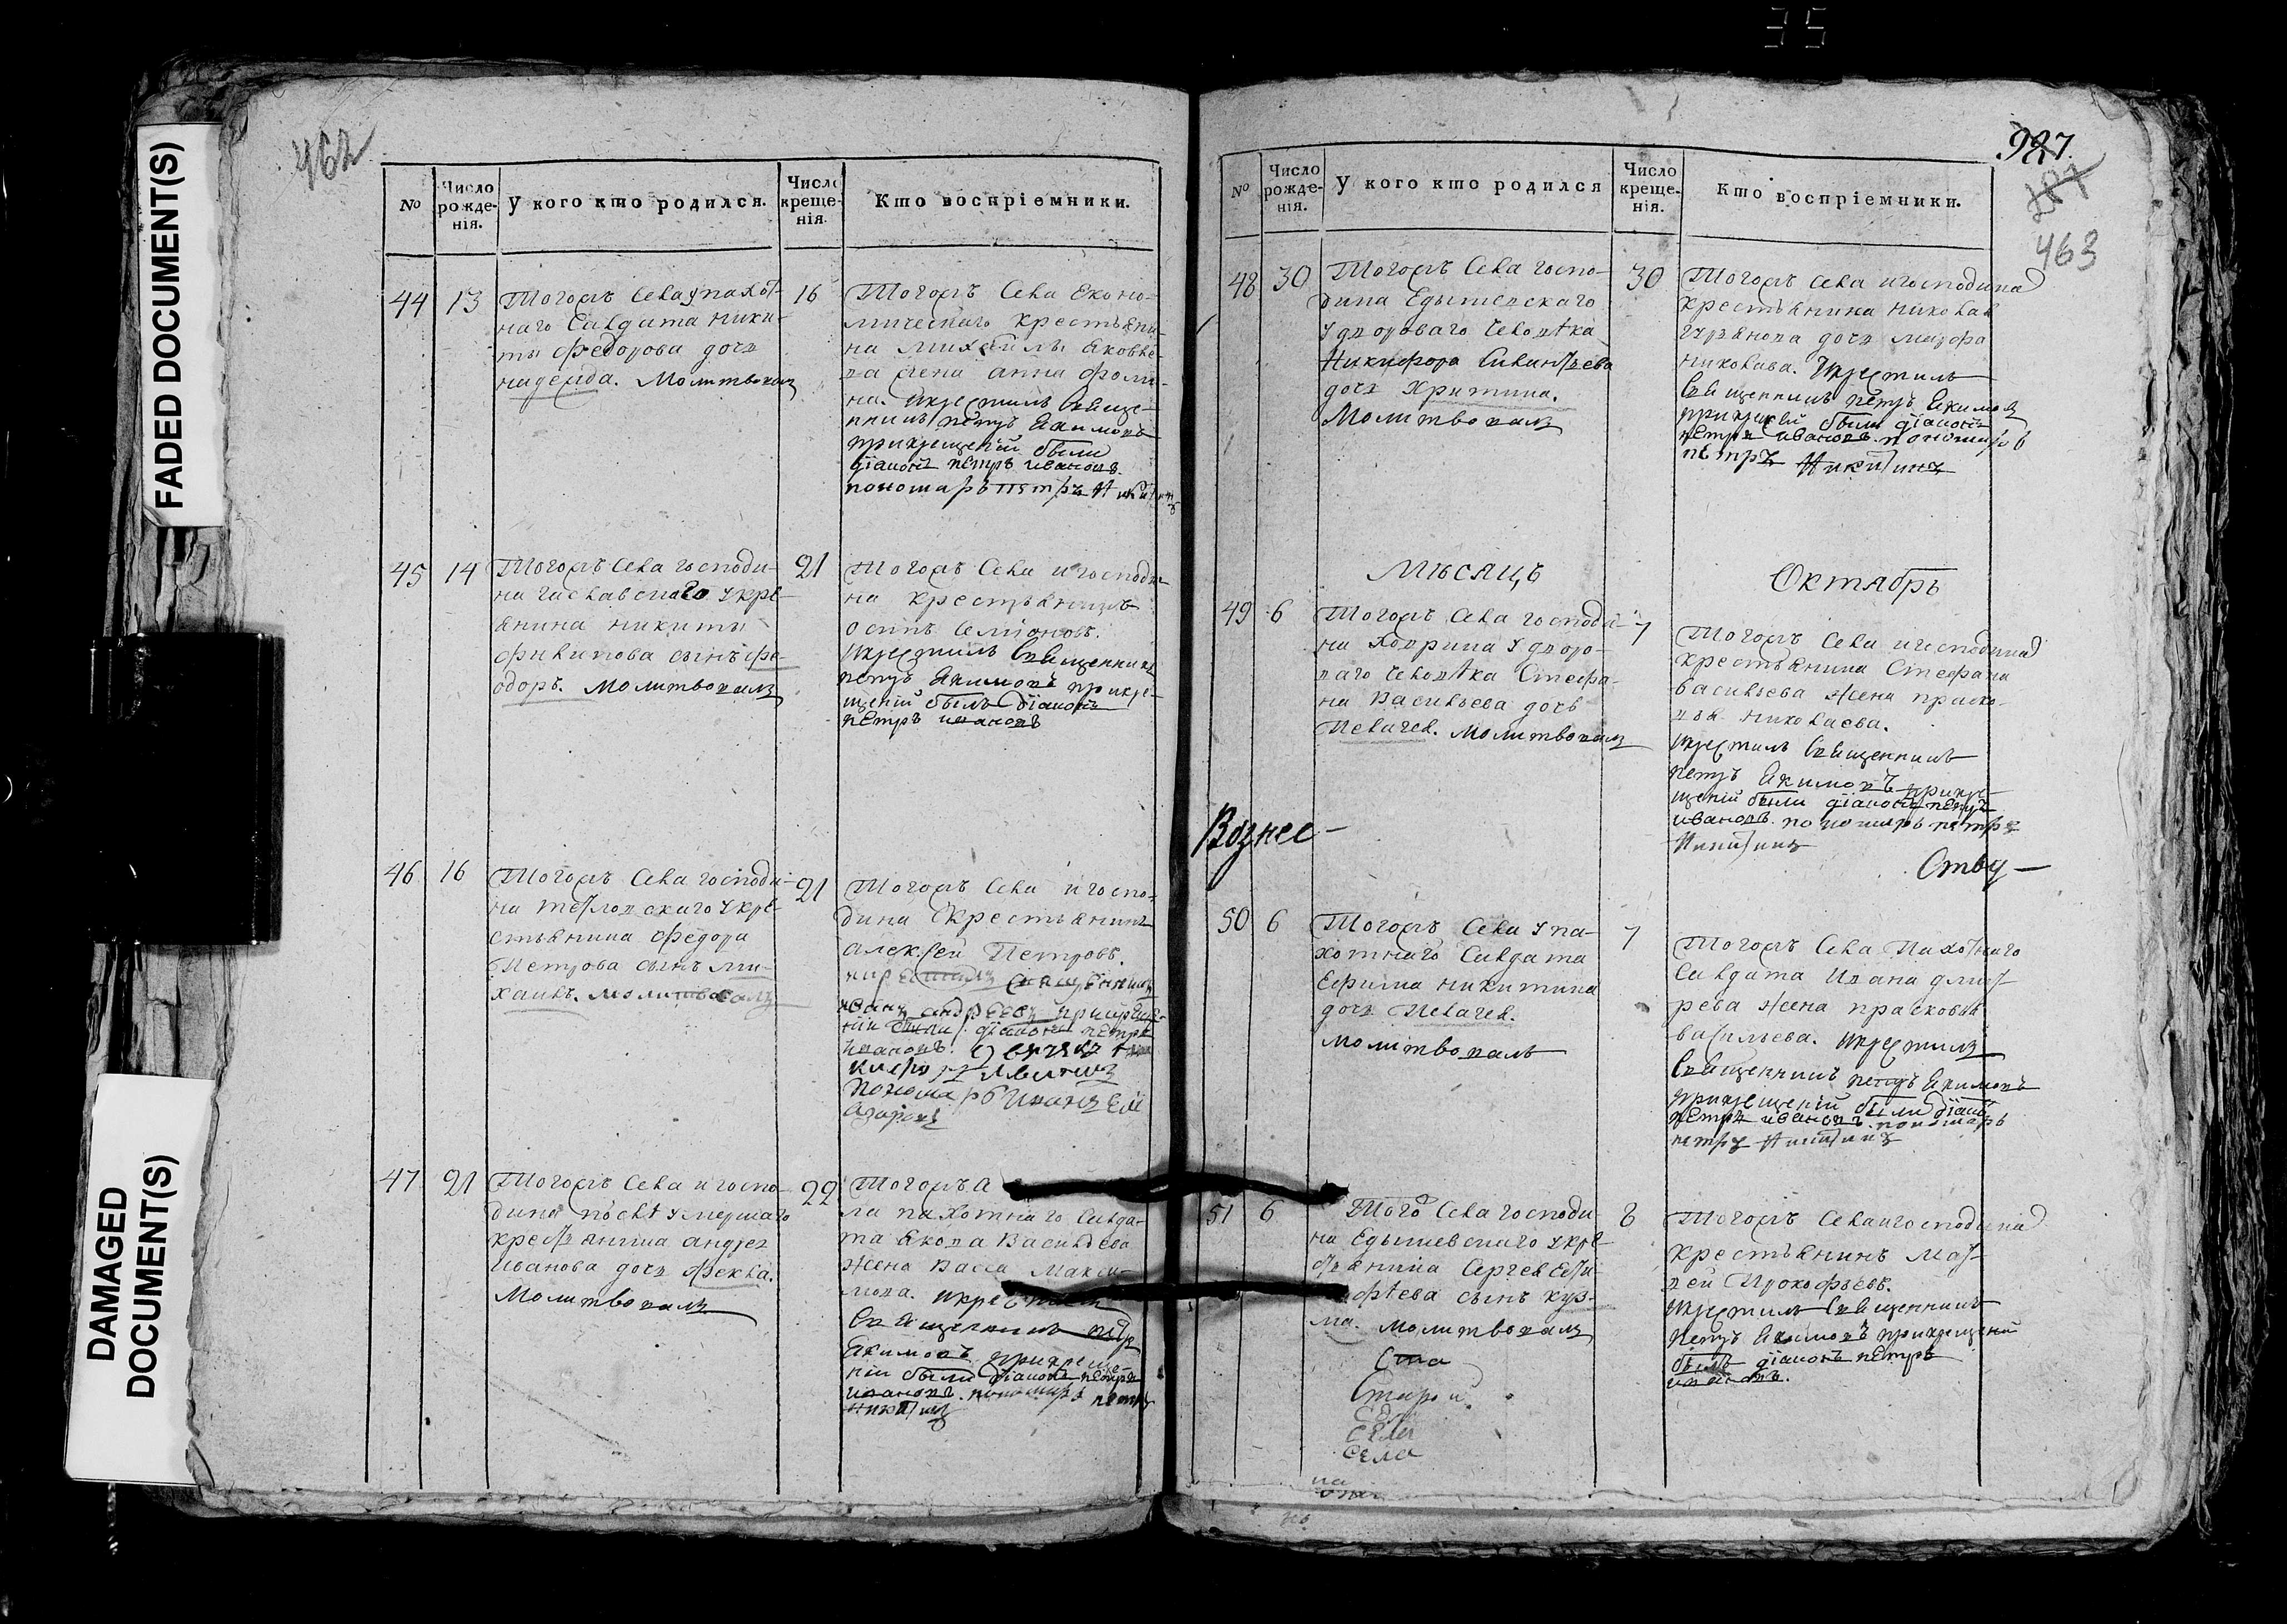 35
FADED DOCUMENT(S)
DAMAGED
DOCUMENT(S)
462
№
Число
рожде-
нія.
У кого кто родился.
Число
креще-
нія.
Кто воспріемники.
44
13
Тогожъ Села упахот-
наго Салдата ники-
ты федорова дочь
надежда. Молитвовалъ
16
Тогожъ Села Еконо-
мическаго крестьяни-
на михайлы яковле-
ва жена анна фоми-
на. икрестилъ Священникъ
петръ Якимовъ
прикрещеніи были
діаконъ петръ ивановъ
пономарь петръ Никитинъ
45
14
Тогожъ Села господи-
на
янина никиты
филипова сынъ фе-
одоръ. Молитвовалъ
21
Тогожъ Села игосподи-
на крестьянинъ
осипъ Семіоновъ.
икрестилъ Священникъ
петръ Якимовъ прикре-
щеніи былъ діаконъ
петръ ивановъ
46
16
Тогожъ Села господи-
на укре-
стьянина Федора
Петрова сынъ ми-
хаилъ. молитвовалъ
21
Тогожъ Села игоспо-
дина крестьянинъ
алексей Петровъ.
икрестилъ Священникъ
иванъ андреевъ прикреще-
ніи были діаконъ петръ
ивановъ.
пономарь иванъ
47
21
Тогожъ Села игоспо-
дина послѣ умершаго
крестьянина андрея
Иванова дочь Фекла.
Молитвовалъ
22
Тогожъ
ла пахотнаго Салда-
та Якова Васильева
жена Васса Макси-
мова. икрестилъ
Священникъ петръ
Якимовъ прикреще-
ніи были діаконъ петръ
ивановъ. пономарь петръ
никитинъ
987.
187
463
№
Число
рожде-
нія.
У кого кто родился
Число
креще-
нія.
Кто воспріемники.
48
30
Тогожъ Села госпо-
дина Едышевскаго
удвороваго человѣка
Никифора Силантьева
дочь Христина.
Молитвовалъ
30
Тогожъ Села игосподина
крестьянина николая
дочь марфа
николаева. икрестилъ
Священникъ петръ Якимовъ
прикрещеніи были діаконъ
петръ ивановъ пономарь
петръ Никитинъ
Мѣсяцъ
Октябрь
49
6
Тогожъ Села господи-
на Ховрина удворо-
ваго человѣка Стефа-
на Васильева дочь
Пелагея. Молитвовалъ
7
Тогожъ Села игосподина
крестьянина Стефана
васильева жена праско-
вья николаева.
икрестилъ Священникъ
петръ Якимовъ прикре-
щеніи были діаконъ петръ
ивановъ. пономарь петръ
Никитинъ
Вознес-
Ству-
50
6
Тогожъ Села упа-
хотнаго Салдата
Ефима никитина
дочь Пелагея.
молитвовалъ
7
Тогожъ Села Пахотнаго
Салдата Ивана дмит-
рева жена прасковья
васильева. икрестилъ
Священникъ петръ Якимовъ
прикрещеніи были діаконъ
петръ ивановъ. пономарь
петръ Никитинъ
51
6
Того Села господи-
на Едышевскаго укре-
стьянина Сергея
сынъ куз-
ма. молитвовалъ
8
Тогожъ Села игосподина
крестьянинъ мат-
вей Прокофьевъ.
икрестилъ Священникъ
петръ Якимовъ прикрещеніи
былъ діаконъ петръ
ивановъ.
Ста
Старои
Села